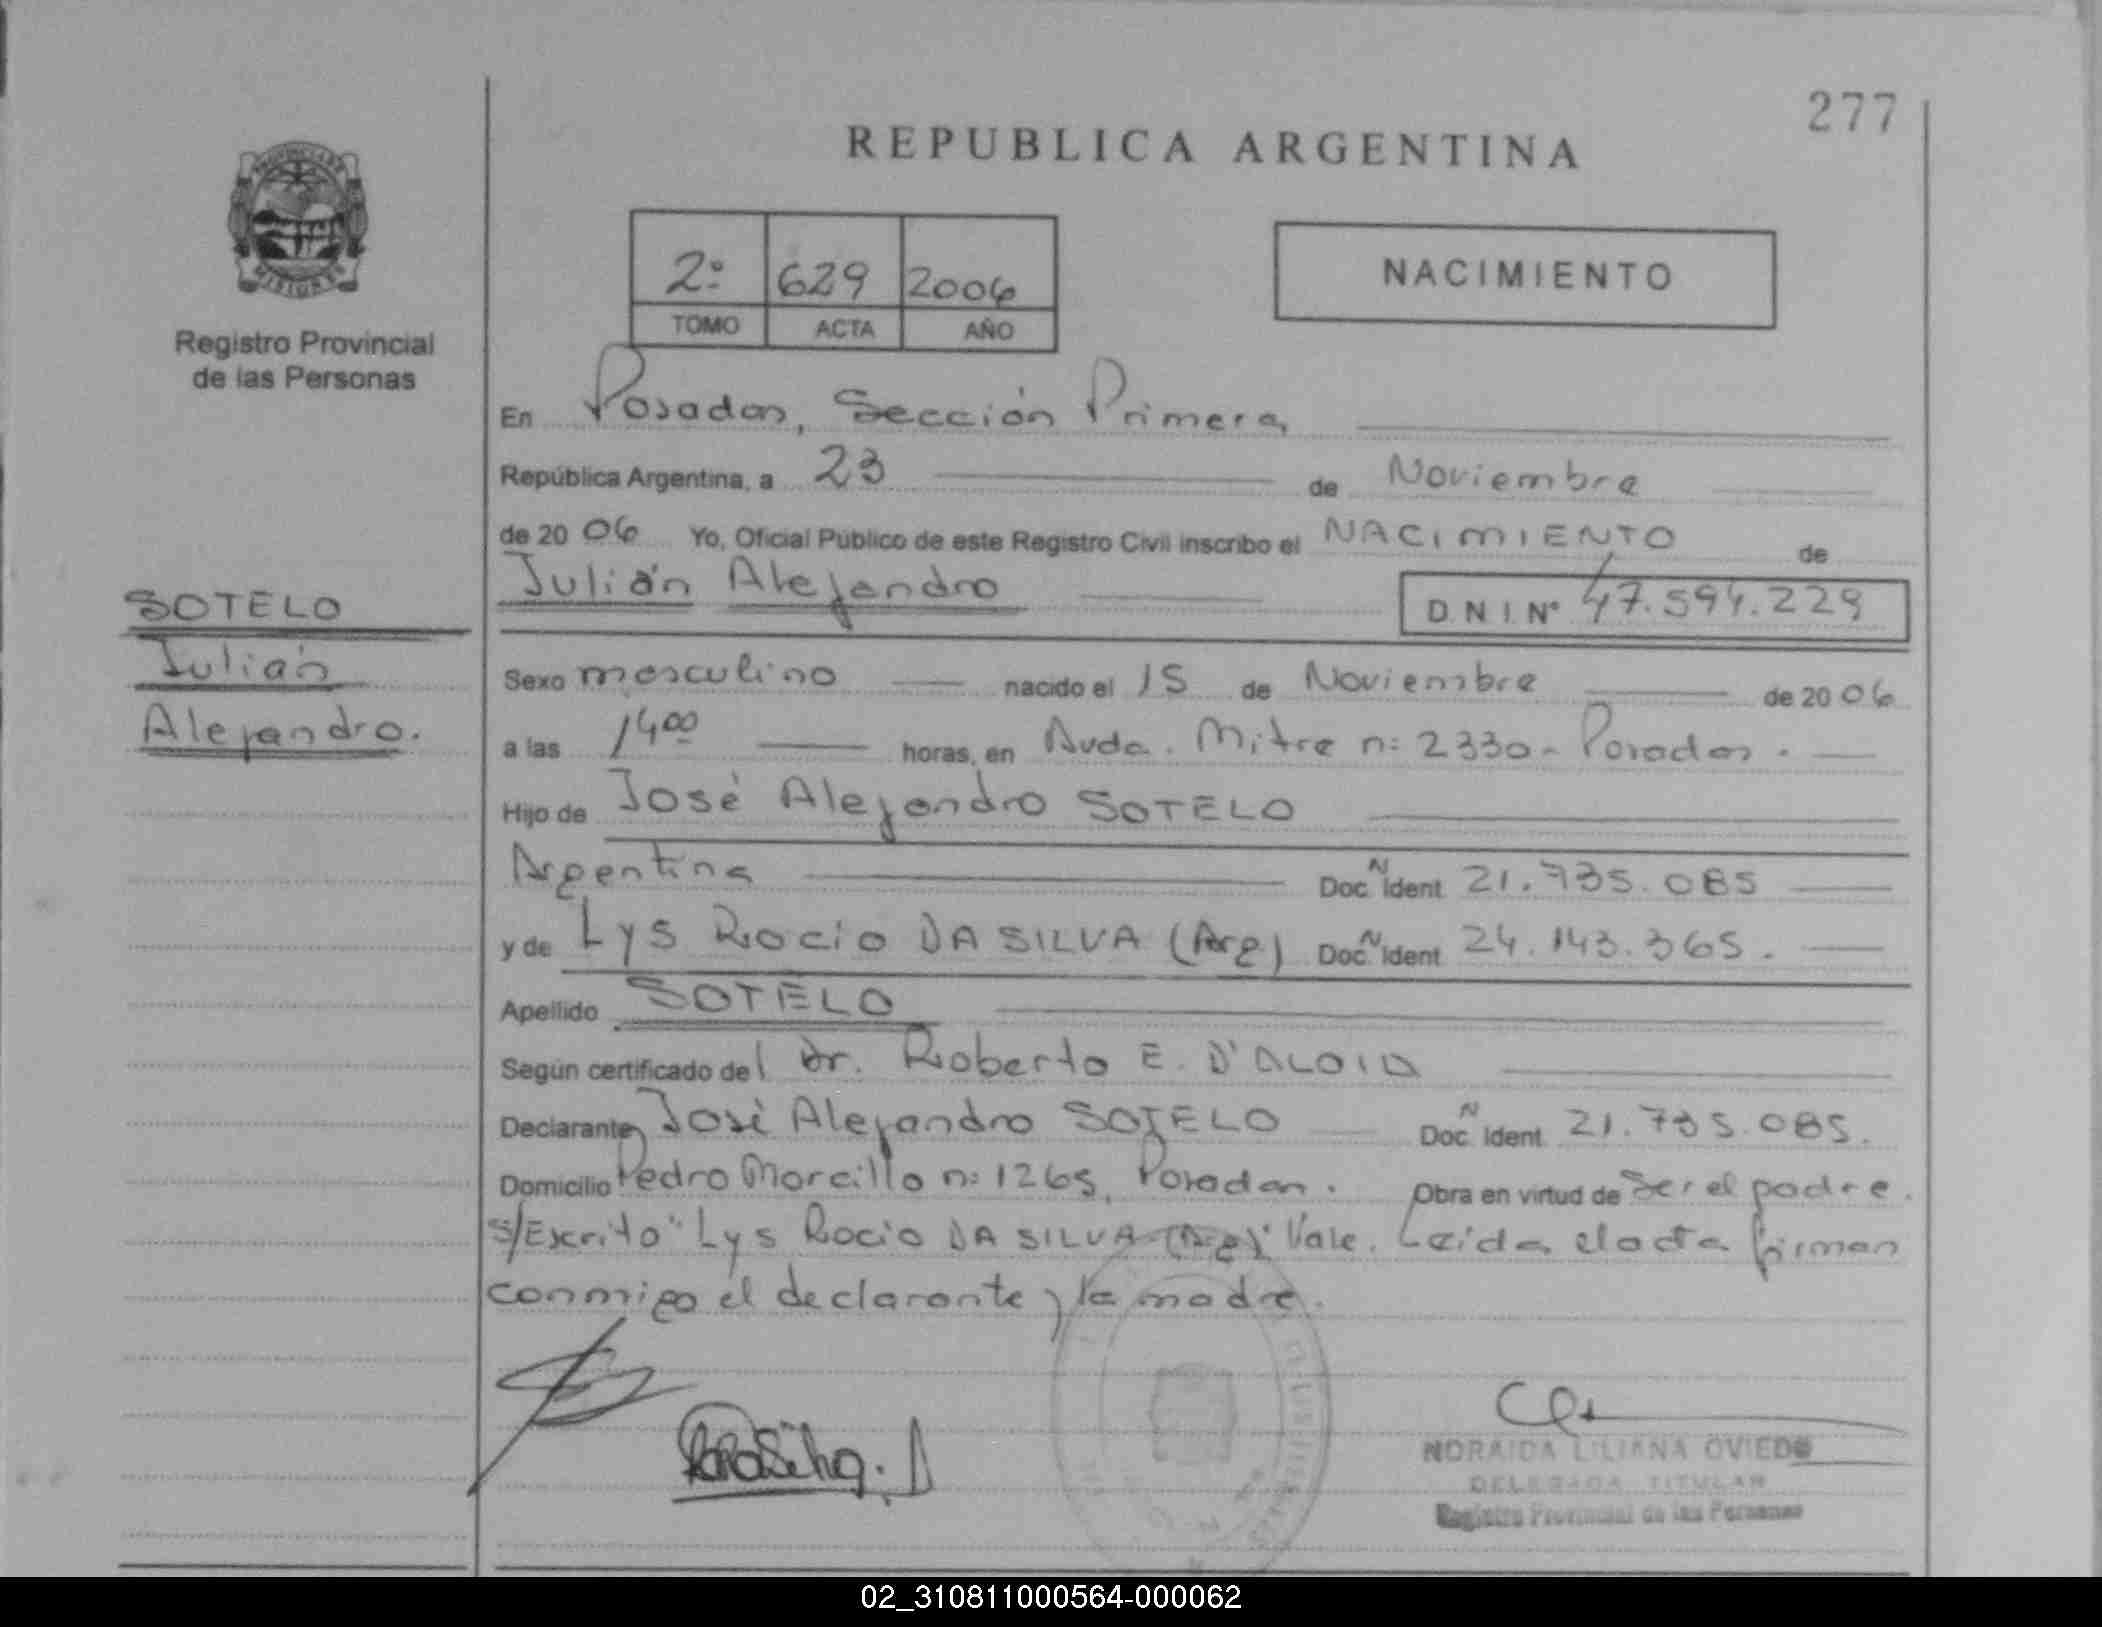 277
REPUBLICA ARGENTINA
2º 629 2006
TOMO ACTA AÑO
NACIMIENTO
PROVINCIA DE
MISIONES
Registro Provincial
de las Personas
En Posadas, Sección Primera
República Argentina, a 23 de Noviembre
de 20 06 Yo, Oficial Público de este Registro Civil inscribo el NACIMIENTO de
Julián Alejandro D.N.I. Nº 47.594.229
SOTELO
Julián
Alejandro.
Sexo masculino nacido el 15 de Noviembre de 20 06
a las 14 00 horas, en Avda. Mitre n: 2330 - Posadas.
Hijo de José Alejandro SOTELO
Argentina Doc. N Ident 21.735.085
y de Lys Rocio DA SILVA (Arg) Doc. N Ident 24.143.365.
Apellido SOTELO
Según certificado del Dr. Roberto E. D'ALOIA
Declarante José Alejandro SOTELO Doc. N Ident 21.735.085.
Domicilio Pedro Morcillo n: 1265, Posadas. Obra en virtud de Ser el padre.
S/Escrito "Lys Rocio DA SILVA (Arg)" Vale. Leída el acta firman
conmigo el declarante y la madre.
NORAIDA LILIANA OVIEDO
DELEGADA TITULAR
Registro Provincial de las Personas
02_310811000564-000062